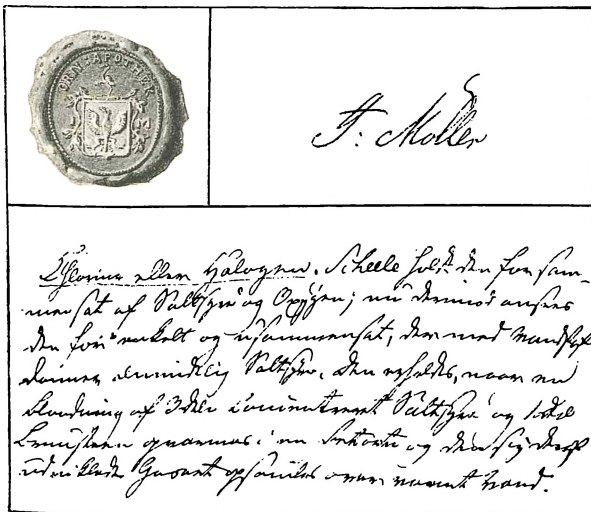 ORN: APOTHEK
F: Møller
Chlorine eller Halogen. Scheele holdt den for sam-
mensat af Saltsyre og Oxygen; nu derimod ansees
den for enkelt og usammensat, der med Vandstof
danner almindelig Saltsyre. Den erholdes, naar en
Blanding af 3 dele concentreret Saltsyre og 1 deel
Bruunsteen opvarmes i en Retorte og den sig deraf
udviklede Gasart opsamles over varmt Vand.